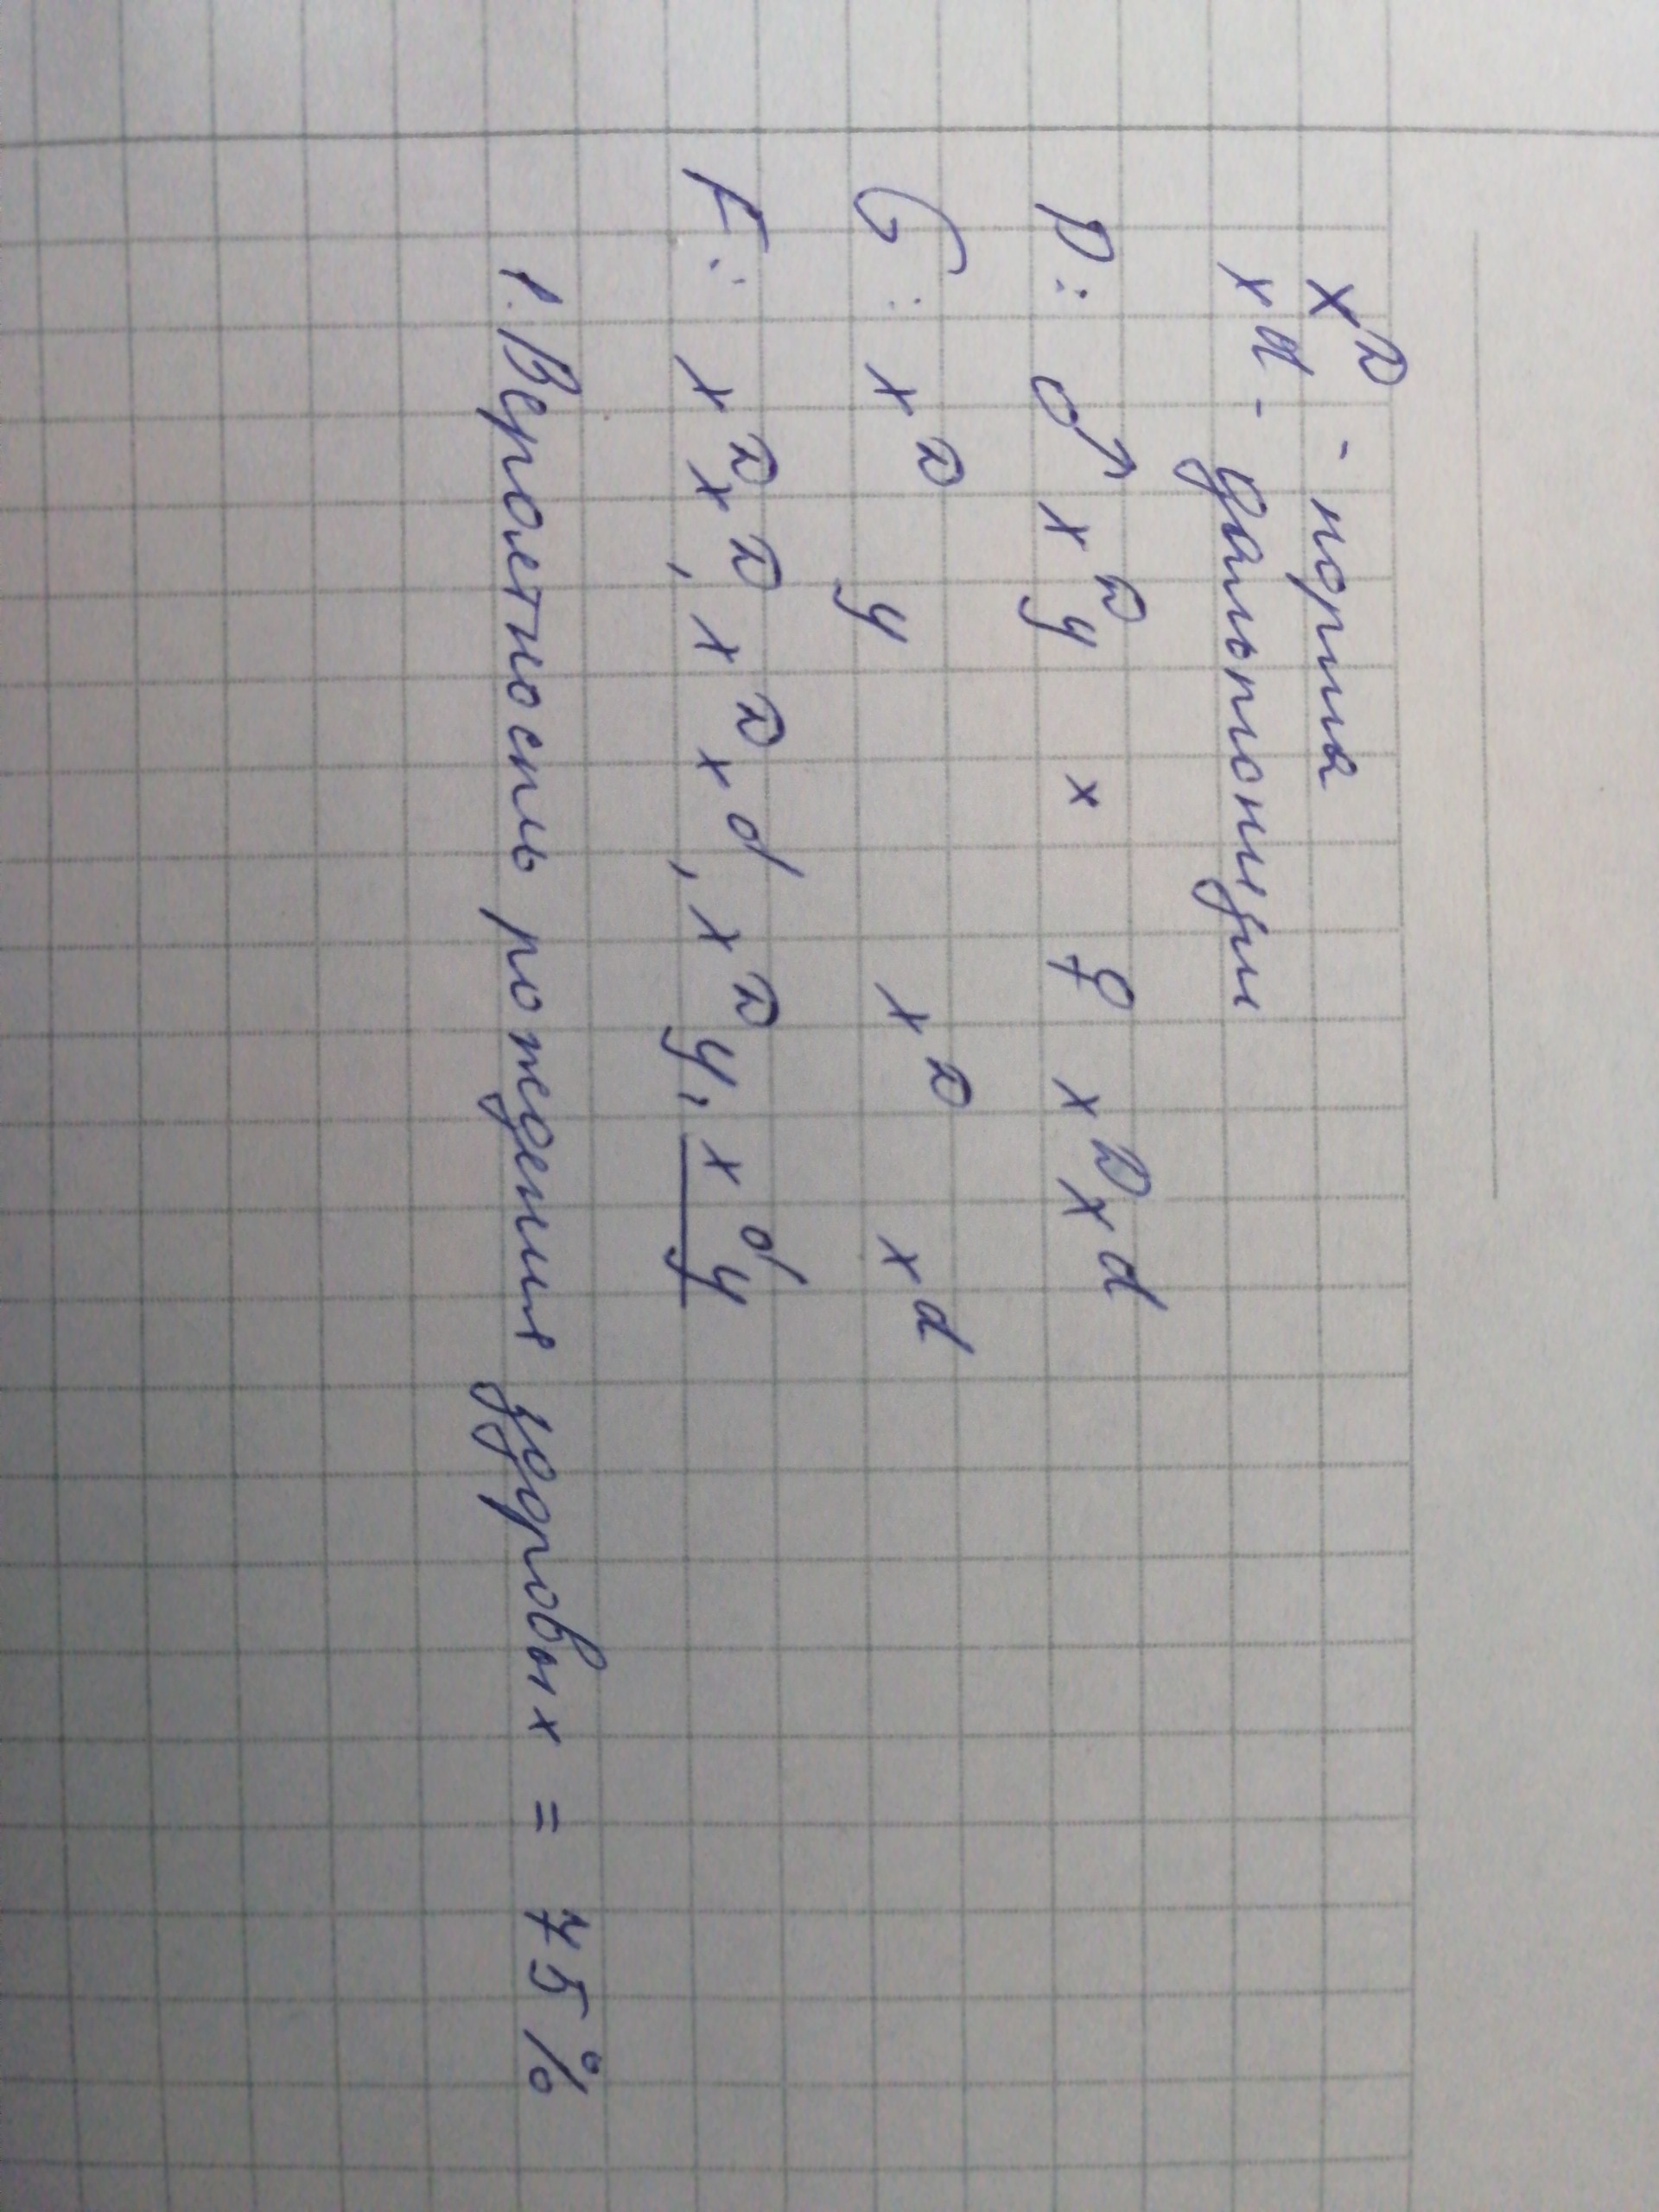 x^D - норма
x^d - дальтонизм
P: ♂ x^D y × ♀ x^D x^d
G: x^D y x^D x^d
F: x^D x^D, x^D x^d, x^D y, x^d y
1. Вероятность рождения здоровых = 75%